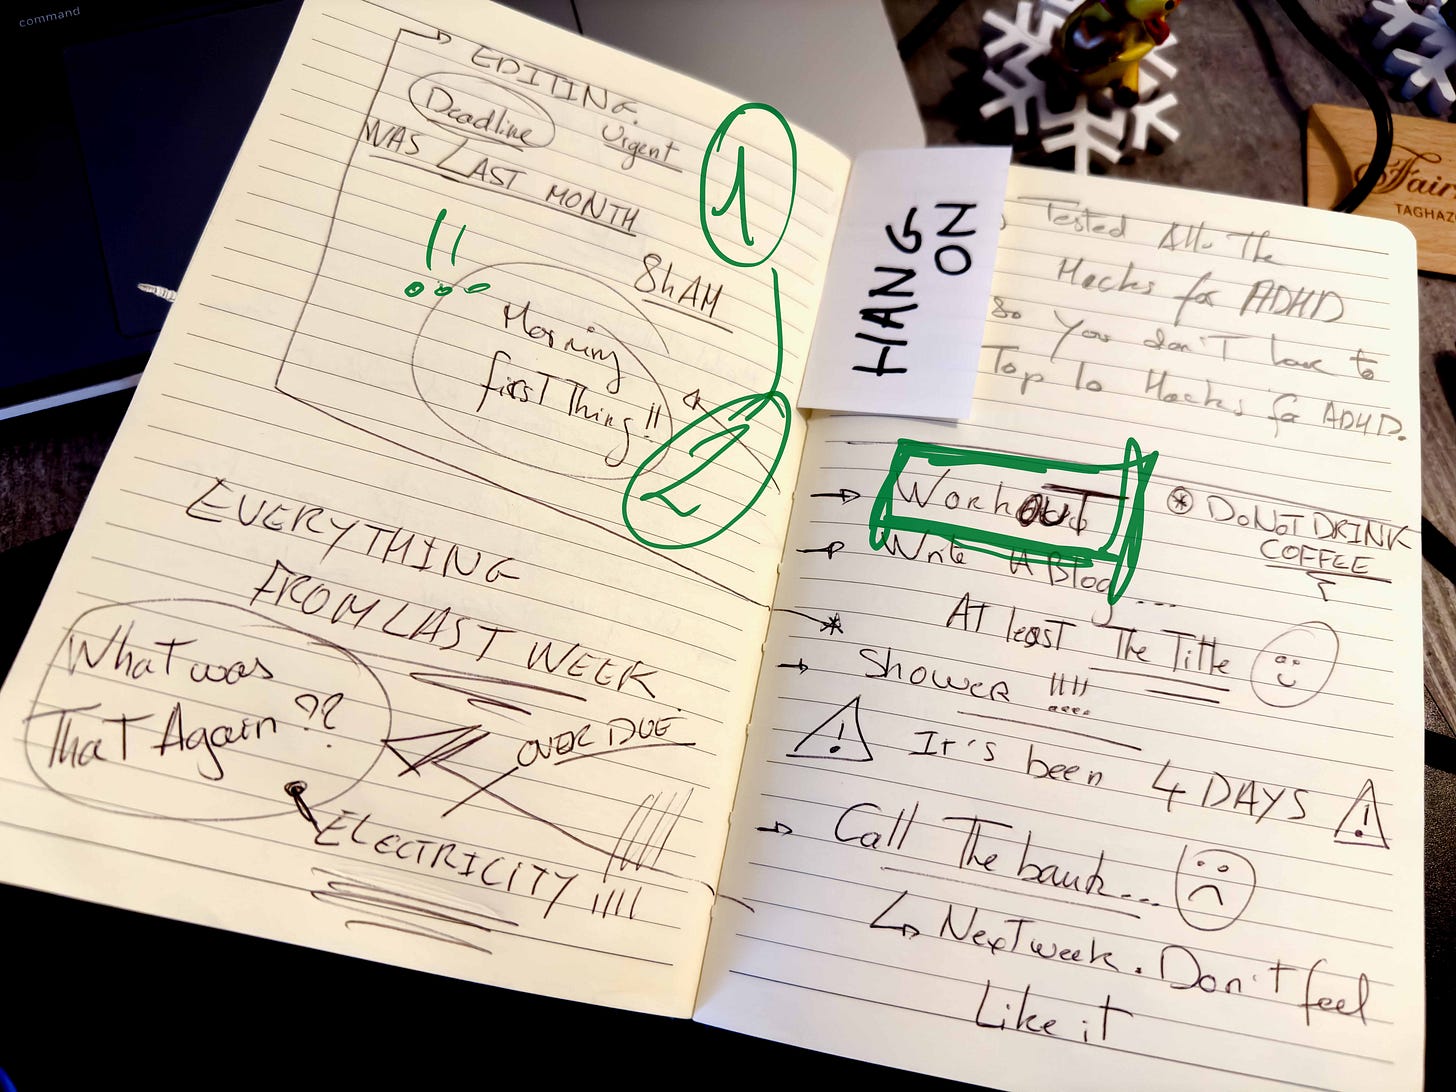 command
EDITING.
Deadline
Urgent
WAS LAST MONTH
1
!!
8h AM
Morning
first Thing!!
2
EVERYTHING
FROM LAST WEEK.
What was
That Again ??
OVER DUE
ELECTRICITY !!!!
HANG
ON
Tested All The
Hacks for ADHD
So You don't have to
Top 10 Hacks for ADHD.
Workout
* DO NOT DRINK
COFFEE
Write A Blog ...
At least The Title
Shower !!!!
! It's been 4 DAYS !
Call The bank...
Next week. Don't feel
Like it
Fair
TAGHAZ